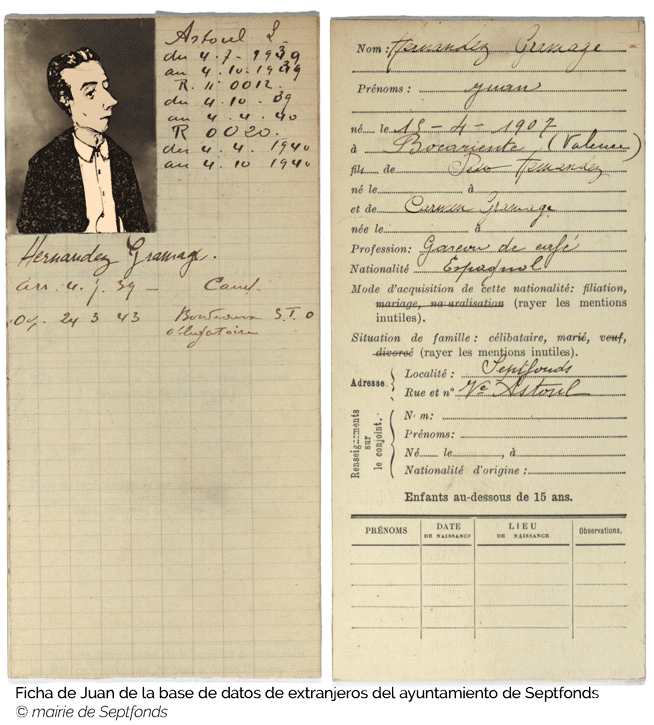 Astoul L
du 4.7-1939
au 4.10.1939
R. n° 0012.
du 4.10.39
au 4.4.40
R 0020.
du 4.4.1940
au 4.10 1940
Hernandez Gramage.
arr. 4.7.39 — Camp.
24 3 43 S.T.O
obligatoire
Nom: Hernandez Gramage
Prénoms: Juan
né le 15-4-1907
à Bocairiente, (Valence)
fils de Hernandez
né le à
et de Carmen Gramage
née le à
Profession: Garcon de café
Nationalité Espagnol
Mode d'acquisition de cette nationalité: filiation,
mariage, na uralisation (rayer les mentions
inutiles).
Situation de famille: célibataire, marié, veuf,
divorcé (rayer les mentions inutiles).
Adresse.
Localité: Septfonds
Rue et n° Ve Astoul
Renseignements
sur
le conjoint.
N m:
Prénoms:
Né le , à
Nationalité d'origine:
Enfants au-dessous de 15 ans.
PRÉNOMS DATE DE NAISSANCE LIEU DE NAISSANCE Observations.
Ficha de Juan de la base de datos de extranjeros del ayuntamiento de Septfonds
© mairie de Septfonds